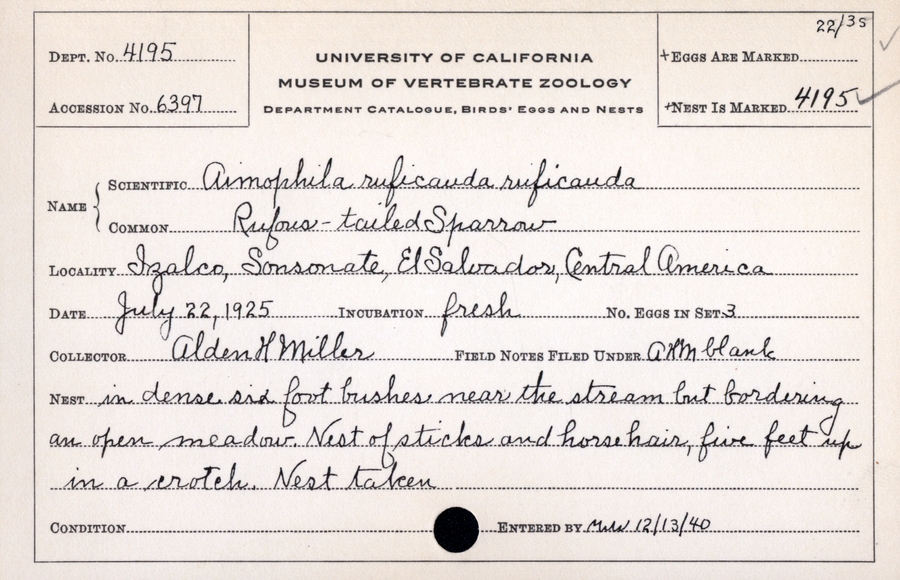 22/35
Dept. No. 4195
UNIVERSITY OF CALIFORNIA
+Eggs Are Marked
MUSEUM OF VERTEBRATE ZOOLOGY
Accession No. 6397
Department Catalogue, Birds' Eggs and Nests
+Nest Is Marked 4195
Name
Scientific Aimophila ruficauda ruficauda
Common Rufous-tailed Sparrow
Locality Izalco, Sonsonate, El Salvador, Central America
Date July 22, 1925 Incubation fresh No. Eggs in Set 3
Collector Alden H Miller Field Notes Filed Under AHM blank
Nest in dense six foot bushes near the stream but bordering
an open meadow. Nest of sticks and horsehair, five feet up
in a crotch. Nest taken
Condition Entered by 12/13/40